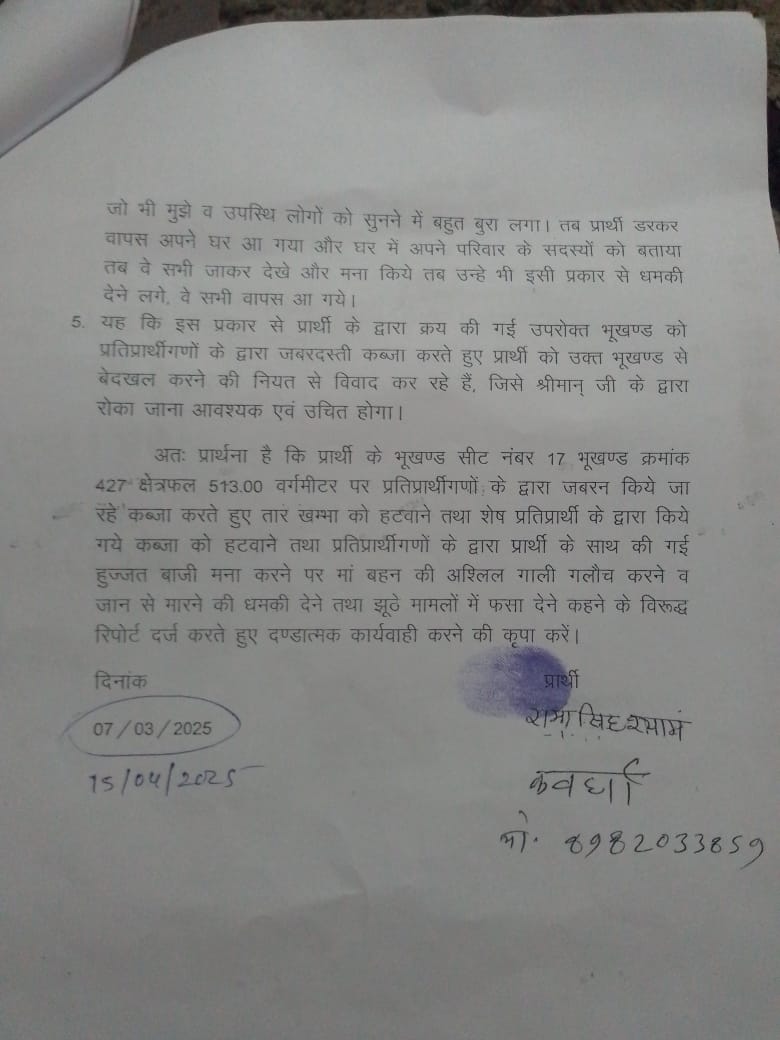 जो भी मुझे व उपस्थि लोगों को सुनने में बहुत बुरा लगा। तब प्रार्थी डरकर
वापस अपने घर आ गया और घर में अपने परिवार के सदस्यों को बताया
तब वे सभी जाकर देखे और मना किये तब उन्हे भी इसी प्रकार से धमकी
देने लगे, वे सभी वापस आ गये।
5. यह कि इस प्रकार से प्रार्थी के द्वारा क्रय की गई उपरोक्त भूखण्ड को
प्रतिप्रार्थीगणों के द्वारा जबरदस्ती कब्जा करते हुए प्रार्थी को उक्त भूखण्ड से
बेदखल करने की नियत से विवाद कर रहे हैं, जिसे श्रीमान् जी के द्वारा
रोका जाना आवश्यक एवं उचित होगा।
अतः प्रार्थना है कि प्रार्थी के भूखण्ड सीट नंबर 17 भूखण्ड क्रमांक
427 क्षेत्रफल 513.00 वर्गमीटर पर प्रतिप्रार्थीगणों के द्वारा जबरन किये जा
रहे कब्जा करते हुए तार खम्भा को हटवाने तथा शेष प्रतिप्रार्थी के द्वारा किये
गये कब्जा को हटवाने तथा प्रतिप्रार्थीगणों के द्वारा प्रार्थी के साथ की गई
हुज्जत बाजी मना करने पर मां बहन की अश्लिल गाली गलौच करने व
जान से मारने की धमकी देने तथा झूठे मामलों में फसा देने कहने के विरूद्ध
रिपोर्ट दर्ज करते हुए दण्डात्मक कार्यवाही करने की कृपा करें।
दिनांक
प्रार्थी
07/03/2025
15/04/2025
कवर्धा
मो. 8982033859